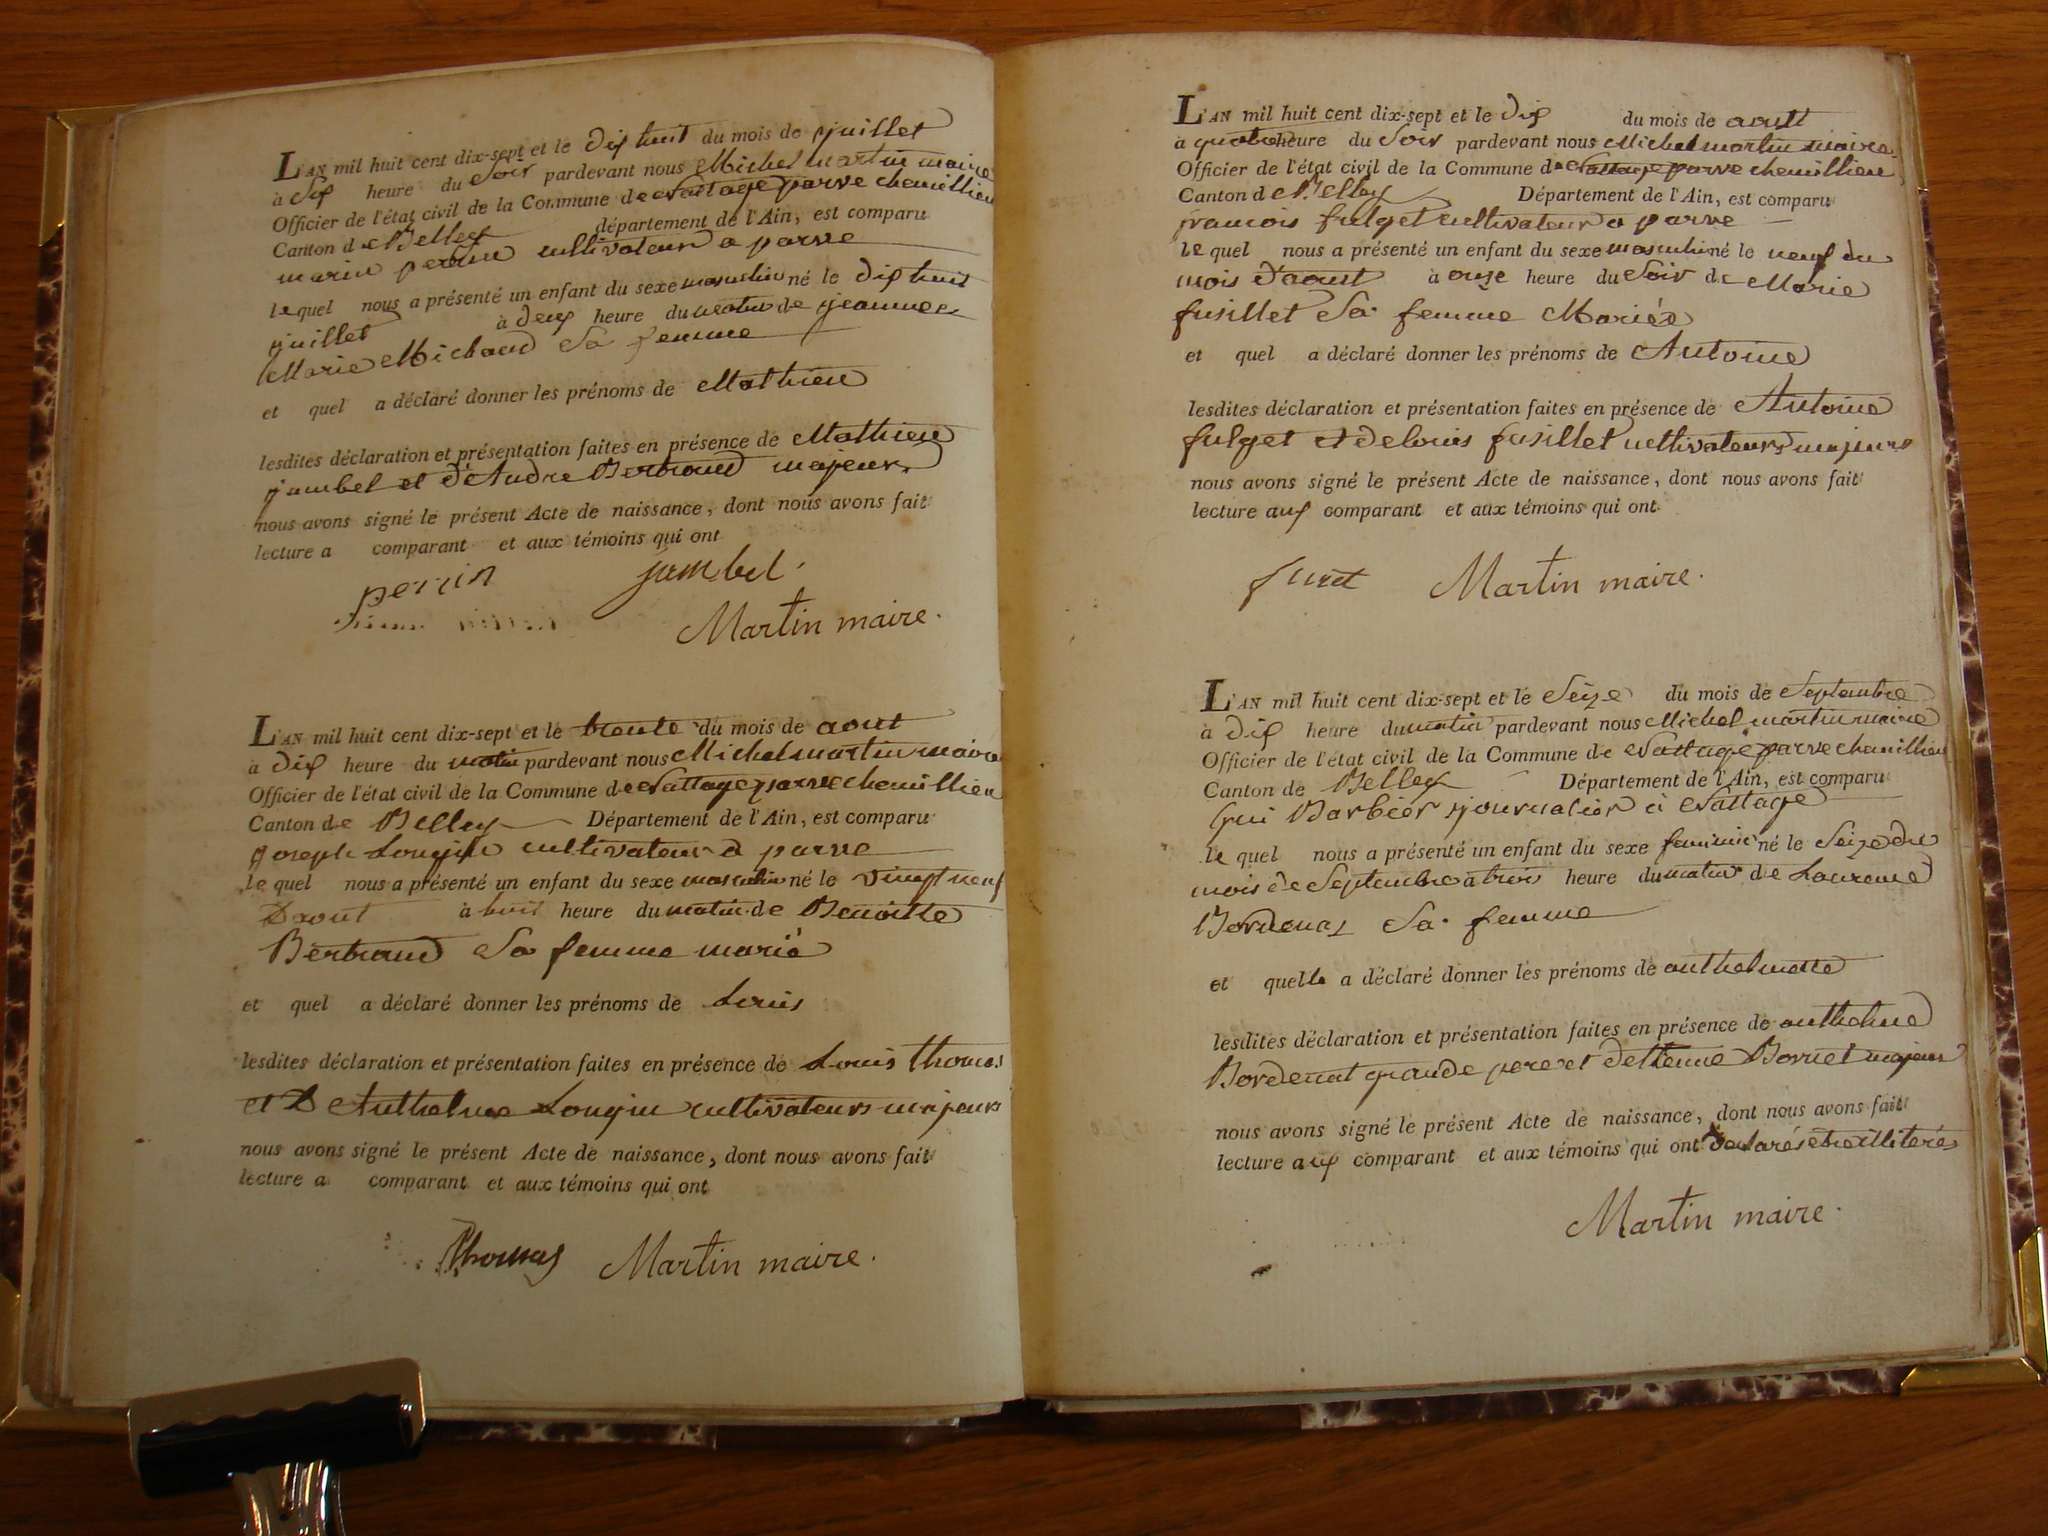 L'AN mil huit cent dix-sept et le dix huit du mois de juillet
à Six heure du Soir pardevant nous Michel martin maire
Officier de l'état civil de la Commune de Nattage parve chemillieu
Canton de Belley département de l'Ain, est comparu
marin perrin cultivateur a parve
lequel nous a présenté un enfant du sexe masculin né le dix huit
juillet à deux heure du matin de jeanne
Marie Michaud Sa femme
et quel a déclaré donner les prénoms de Mathieu
lesdites déclaration et présentation faites en présence de Mathieu
jambet et d'Andre Bertrand majeur
nous avons signé le présent Acte de naissance, dont nous avons fait
lecture a comparant et aux témoins qui ont
perrin jambet
Martin maire.
L'AN mil huit cent dix-sept et le trente du mois de aout
à dix heure du matin pardevant nous Michel martin maire
Officier de l'état civil de la Commune de Nattage parve chemillieu
Canton de Belley Département de l'Ain, est comparu
joseph Longin cultivateur a parve
lequel nous a présenté un enfant du sexe masculin né le vingt neuf
Daout à huit heure du matin de Benoitte
Bertrand Sa femme marié
et quel a déclaré donner les prénoms de Louis
lesdites déclaration et présentation faites en présence de Louis thomas
et D Anthelme Longin cultivateurs majeurs
nous avons signé le présent Acte de naissance, dont nous avons fait
lecture a comparant et aux témoins qui ont
Thomas Martin maire.
L'AN mil huit cent dix-sept et le dix du mois de aoust
à quatre heure du Soir pardevant nous Michel martin maire
Officier de l'état civil de la Commune de Nattage parve chemillieu
Canton de Belley Département de l'Ain, est comparu
francois fulget cultivateur a parve
lequel nous a présenté un enfant du sexe masculin né le neuf du
mois d'aoust à onze heure du Soir de Marie
fusillet Sa femme Mariée
et quel a déclaré donner les prénoms de Antoine
lesdites déclaration et présentation faites en présence de Antoine
fulget et de louis fusillet cultivateurs majeurs
nous avons signé le présent Acte de naissance, dont nous avons fait
lecture aux comparant et aux témoins qui ont
Martin maire.
L'AN mil huit cent dix-sept et le Seize du mois de Septembre
à dix heure du matin pardevant nous Michel martin maire
Officier de l'état civil de la Commune de Nattage parve chemillieu
Canton de Belley Département de l'Ain, est comparu
Gui Barbier journalier à Nattage
lequel nous a présenté un enfant du sexe feminin né le Seize du
mois de Septembre à trois heure du matin de Laurence
Bordenat Sa femme
et quelle a déclaré donner les prénoms de anthelmette
lesdites déclaration et présentation faites en présence de anthelme
Bordenat grande pere et dettenne Bornet majeur
nous avons signé le présent Acte de naissance, dont nous avons fait
lecture aux comparant et aux témoins qui ont declarés etre illiterés
Martin maire.